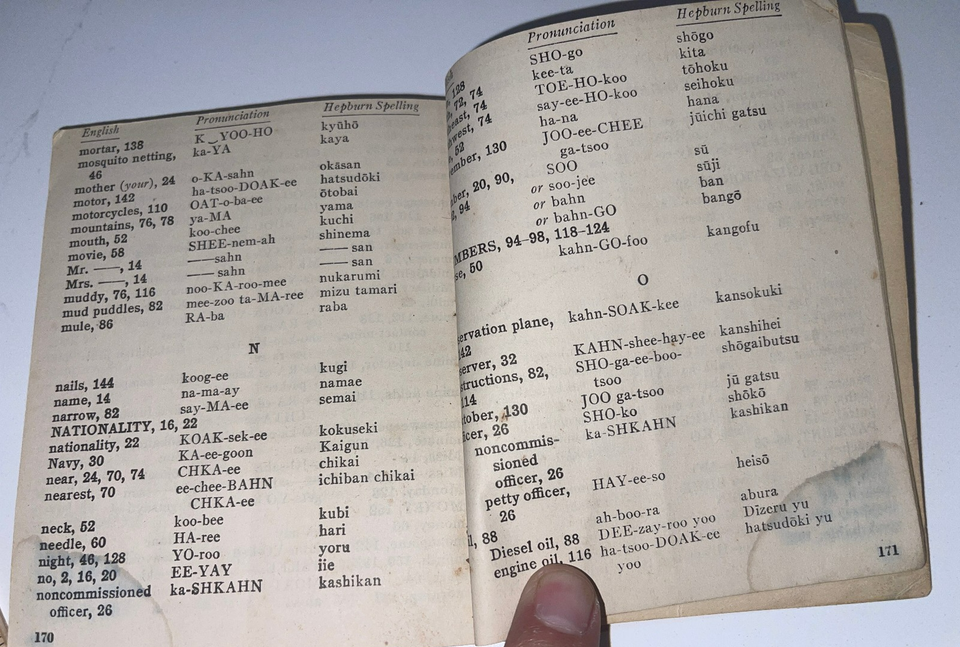 English Pronunciation Hepburn Spelling
mortar, 138 K‿YOO-HO kyūhō
mosquito netting, ka-YA kaya
46
mother (your), 24 o-KA-sahn okāsan
motor, 142 ha-tsoo-DOAK-ee hatsudōki
motorcycles, 110 OAT-o-ba-ee ōtobai
mountains, 76, 78 ya-MA yama
mouth, 52 koo-chee kuchi
movie, 58 SHEE-nem-ah shinema
Mr. ——, 14 ——sahn —— san
Mrs. ——, 14 —— sahn —— san
muddy, 76, 116 noo-KA-roo-mee nukarumi
mud puddles, 82 mee-zoo ta-MA-ree mizu tamari
mule, 86 RA-ba raba
N
nails, 144 koog-ee kugi
name, 14 na-ma-ay namae
narrow, 82 say-MA-ee semai
NATIONALITY, 16, 22
nationality, 22 KOAK-sek-ee kokuseki
Navy, 30 KA-ee-goon Kaigun
near, 24, 70, 74 CHKA-ee chikai
nearest, 70 ee-chee-BAHN ichiban chikai
CHKA-ee
neck, 52 koo-bee kubi
needle, 60 HA-ree hari
night, 46, 128 YO-roo yoru
no, 2, 16, 20 EE-YAY iie
noncommissioned ka-SHKAHN kashikan
officer, 26
170
Pronunciation Hepburn Spelling
128 SHO-go shōgo
72, 74 kee-ta kita
east, 74 TOE-HO-koo tōhoku
west, 74 say-ee-HO-koo seihoku
52 ha-na hana
ember, 130 JOO-ee-CHEE jūichi gatsu
ga-tsoo
ber, 20, 90, SOO sū
94 or soo-jee sūji
or bahn ban
or bahn-GO bangō
MBERS, 94–98, 118–124
se, 50 kahn-GO-foo kangofu
O
ervation plane, kahn-SOAK-kee kansokuki
142
server, 32 KAHN-shee-hay-ee kanshihei
tructions, 82, SHO-ga-ee-boo- shōgaibutsu
114 tsoo
tober, 130 JOO ga-tsoo jū gatsu
icer, 26 SHO-ko shōkō
noncommis- ka-SHKAHN kashikan
sioned
officer, 26
petty officer, HAY-ee-so heisō
26
l, 88 ah-boo-ra abura
Diesel oil, 88 DEE-zay-roo yoo Dizeru yu
engine oil, 116 ha-tsoo-DOAK-ee hatsudōki yu
yoo
171